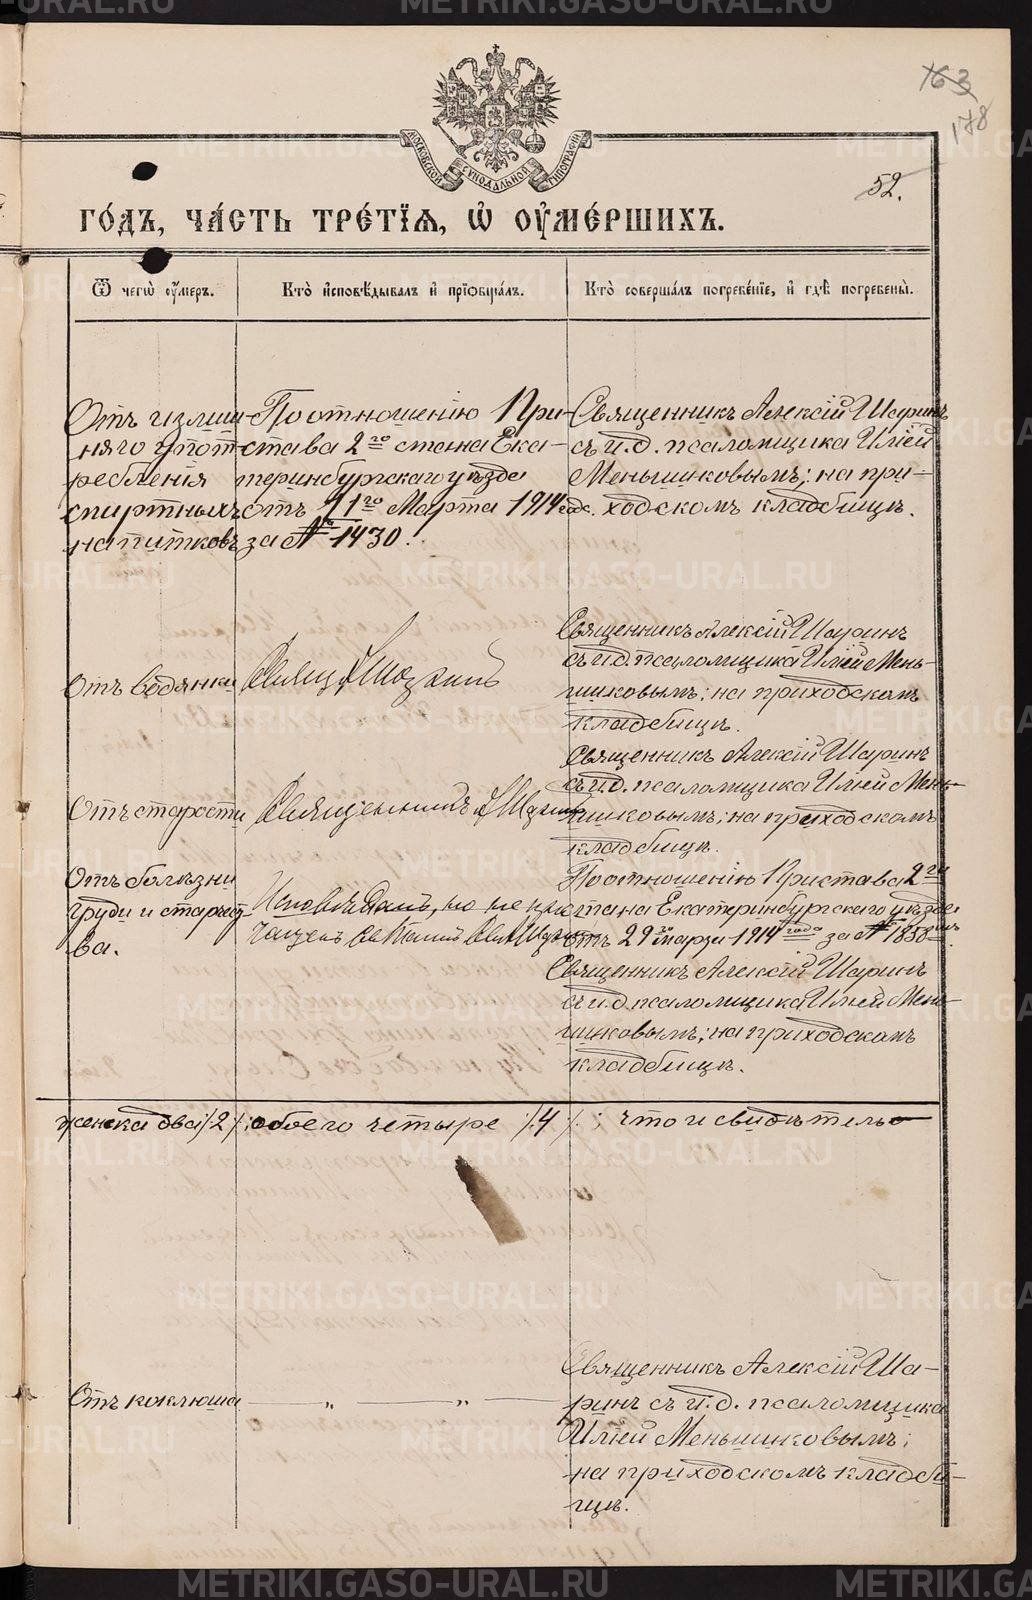 METRIKI.GASO-URAL.RU
163
178
МОСКОВСКОЙ СѴНОДАЛЬНОЙ ТИПОГРАФІИ
52.
ГО́ДЪ, ЧА́СТЬ ТРЕ́ТІѦ, Ѡ҆ ОУ҆МЕ́РШИХЪ.
Ѿ чегѡ̀ оу҆́меръ.
Кто̀ и҆сповѣ́дывалъ и҆ прїѡбща́лъ.
Кто̀ соверша́лъ погребе́нїе, и҆ гдѣ̀ погребены̀.
Отъ излиш-
няго упот-
ребленія
спиртныхъ
напитковъ
По отношенію При-
става 2го стана Ека-
теринбургскаго уѣзда
отъ 11го Марта 1914 года.
за № 1430.
Священникъ Алексій Шаринъ
съ и.д. псаломщика Иліей
Меньшиковымъ; на при-
ходскомъ кладбищѣ.
Отъ водянки
Священникъ Алексій Шаринъ
съ и.д. псаломщика Иліей Мень-
шиковымъ; на приходскомъ
кладбищѣ.
Отъ старости
Священникъ А Шаринъ
Священникъ Алексій Шаринъ
съ и.д. псаломщика Иліей Мень-
шиковымъ; на приходскомъ
кладбищѣ.
Отъ болѣзни
груди и старчест-
ва.
Исповѣданъ, но не при-
чащенъ
По отношенію Пристава 2го
стана Екатеринбургскаго уѣзда
отъ 29го марта 1914 года за № 1858мъ.
Священникъ Алексій Шаринъ
съ и.д. псаломщика Иліей Мень-
шиковымъ; на приходскомъ
кладбищѣ.
женска два /2/; обоего четыре /4/; что и свидѣтель-
Отъ коклюша — „ — „ —
Священникъ Алексій Ша-
ринъ съ и.д. псаломщика
Иліей Меньшиковымъ;
на приходскомъ кладби-
щѣ.